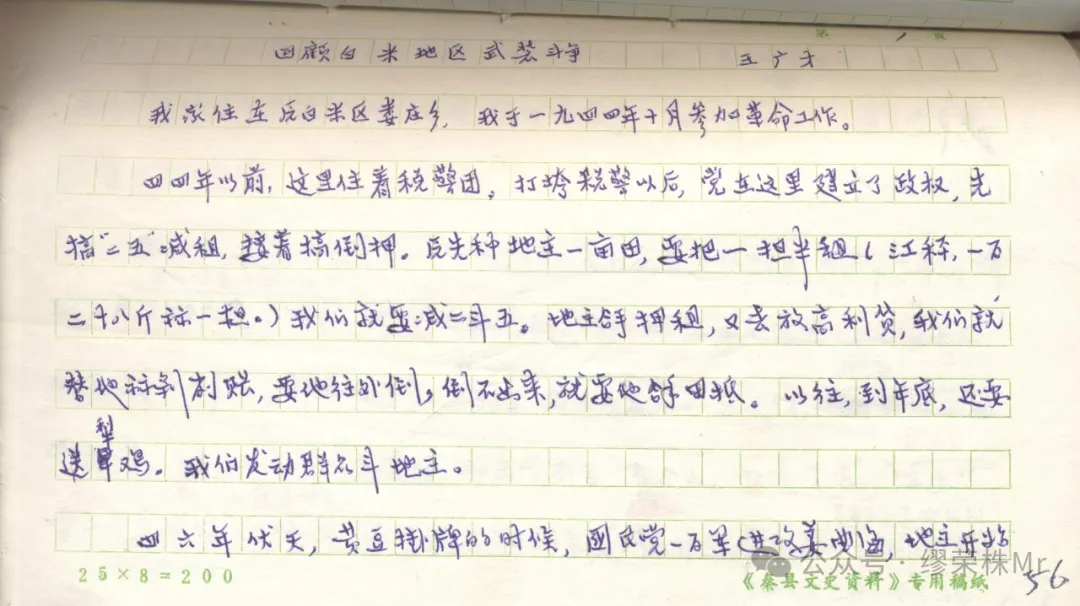 第 1 页
回顾白米地区武装斗争 王广才
我家住在后白米区娄庄乡，我于一九四四年十月参加革命工作。
四四年以前，这里住着税警团。打垮税警以后，党在这里建立了政权，先
搞“二五”减租，接着搞倒押。后先种地主一亩田，要把一担半租（三江秤，一百
二十八斤称一担。）我们就要减二斗五。地主拿押租，又去放高利贷，我们就
替他 剥账，要他往外倒。倒不出来，就要他拿田抵。以往，到年底，还要
送犁鸡。我们发动群众斗地主。
四六年伏天，黄豆掛牌的时候，国民党一百军进攻姜曲海，地主开始
25×8=200
《泰县文史资料》专用稿纸
56
公众号·缪荣株Mr